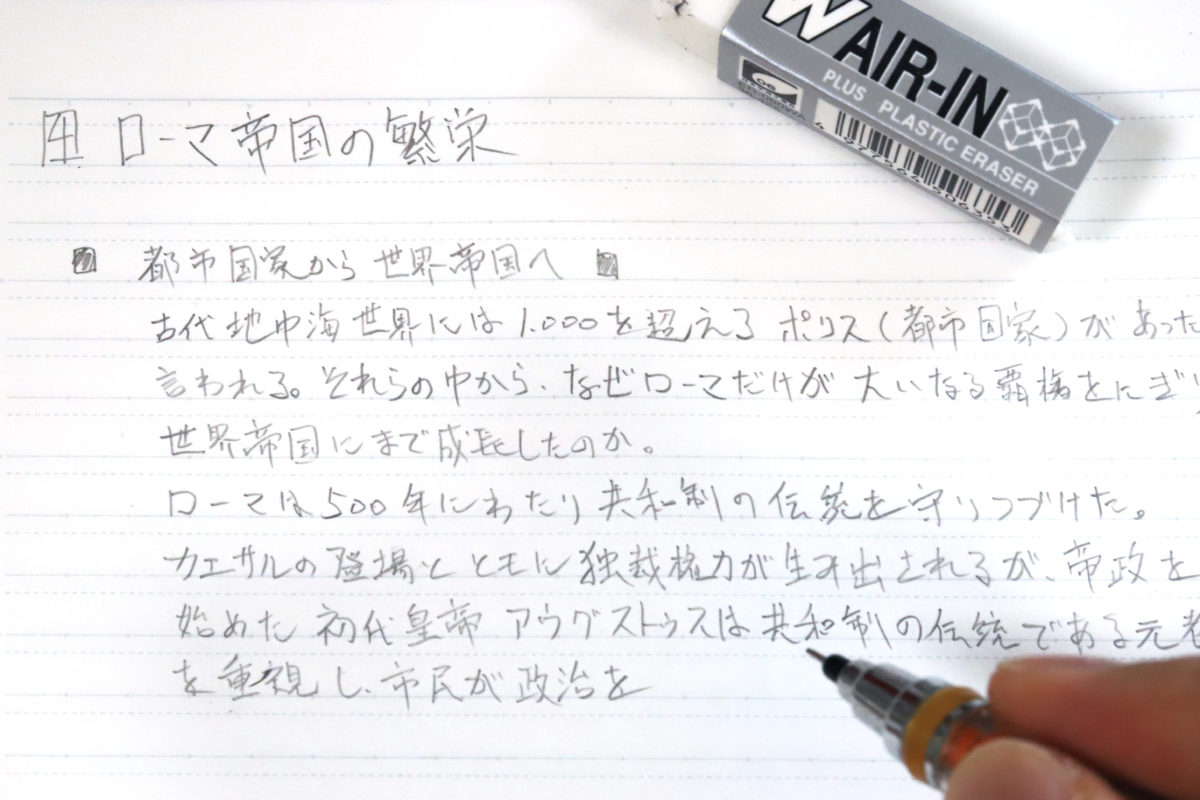 W AIR-IN
PLUS PLASTIC ERASER
4 ローマ帝国の繁栄
都市国家から世界帝国へ
古代地中海世界には1.000を超えるポリス(都市国家)があった
言われる。それらの中から、なぜローマだけが大いなる覇権をにぎり
世界帝国にまで成長したのか。
ローマは500年にわたり共和制の伝統を守りつづけた。
カエサルの登場とともに独裁権力が生み出されるが、帝政を
始めた初代皇帝アウグストゥスは共和制の伝統である元老
を重視し、市民が政治を